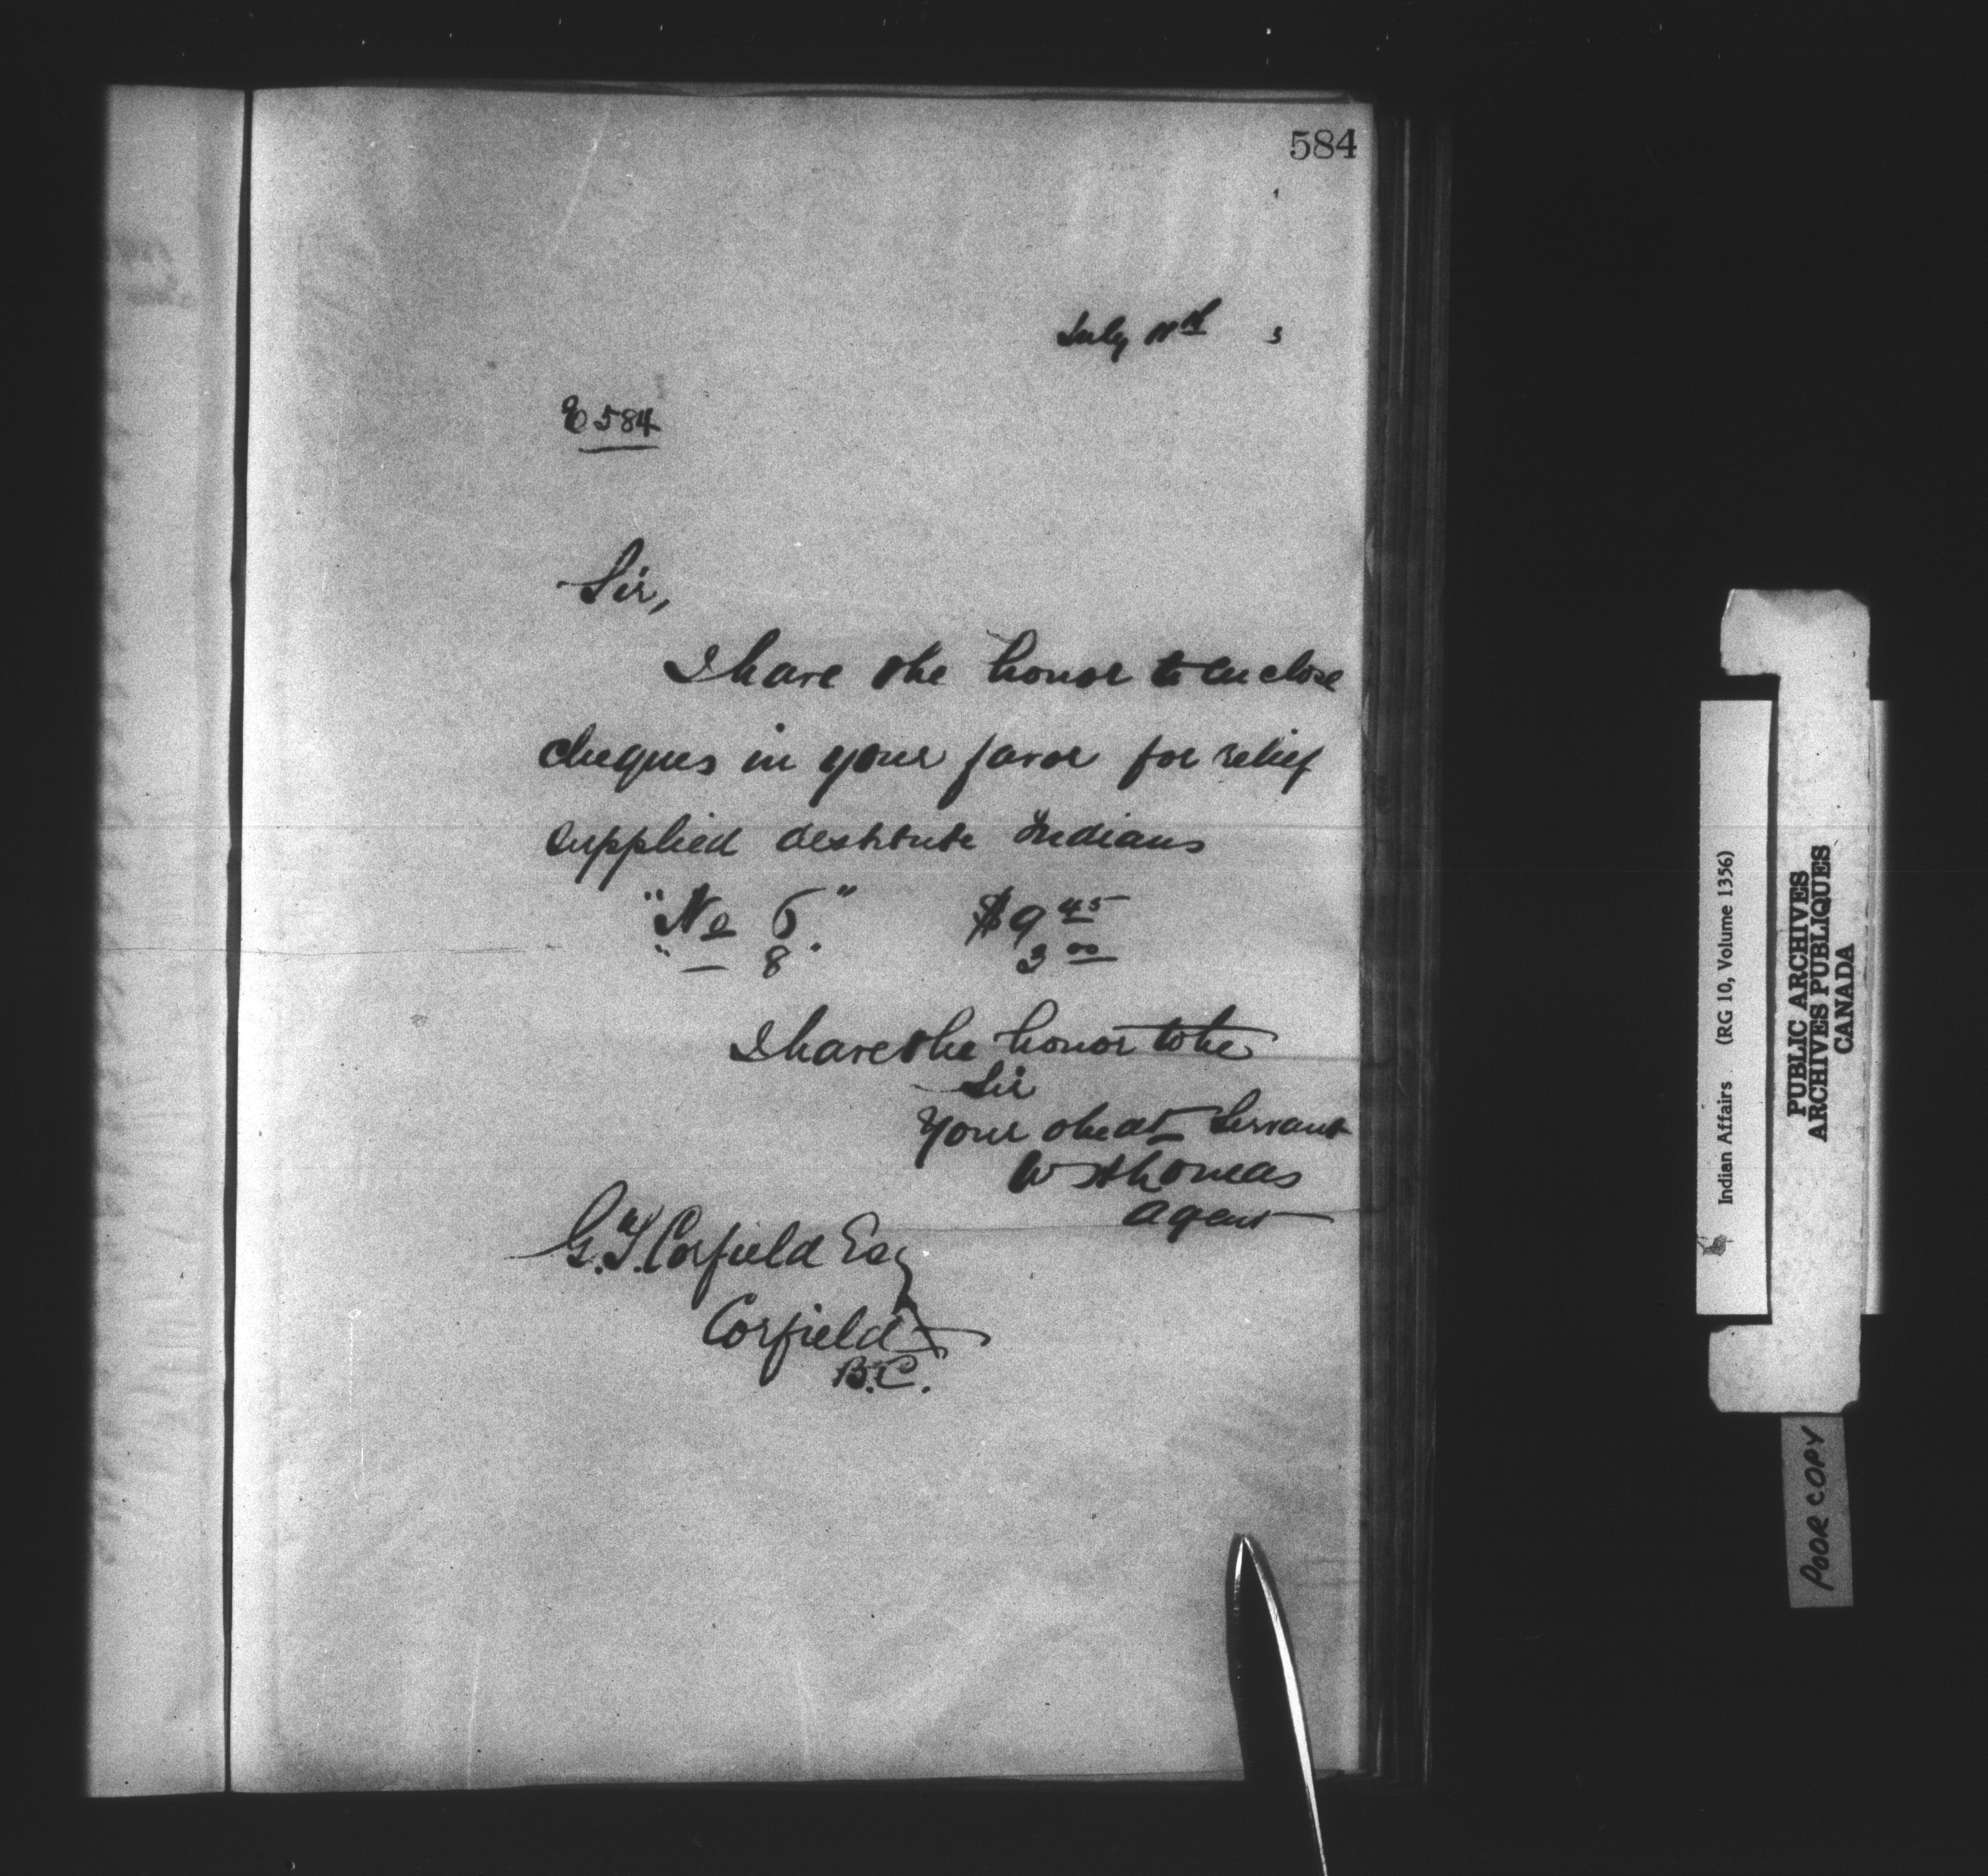 584
July 11th 3
E 584
Sir,
I have the honor to enclose
cheques in your favor for relief
supplied destitute Indians
"No 6" $9 45
" — 8. 3 00
I have the honor to be
Sir
Your obedt Servant
Agent
G.T. Corfield Esq
Corfield
B.C.
Indian Affairs (RG 10, Volume 1356)
PUBLIC ARCHIVES
ARCHIVES PUBLIQUES
CANADA
POOR COPY